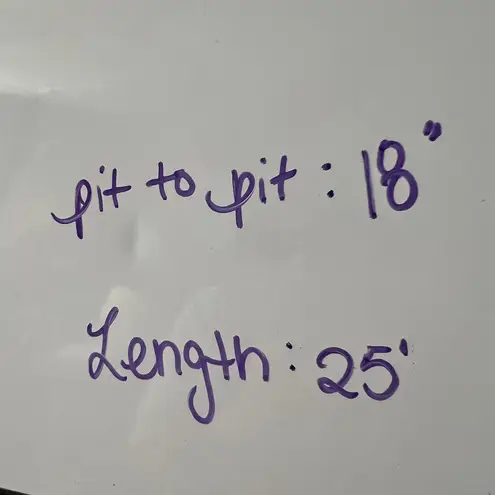 pit to pit : 18"
Length : 25'